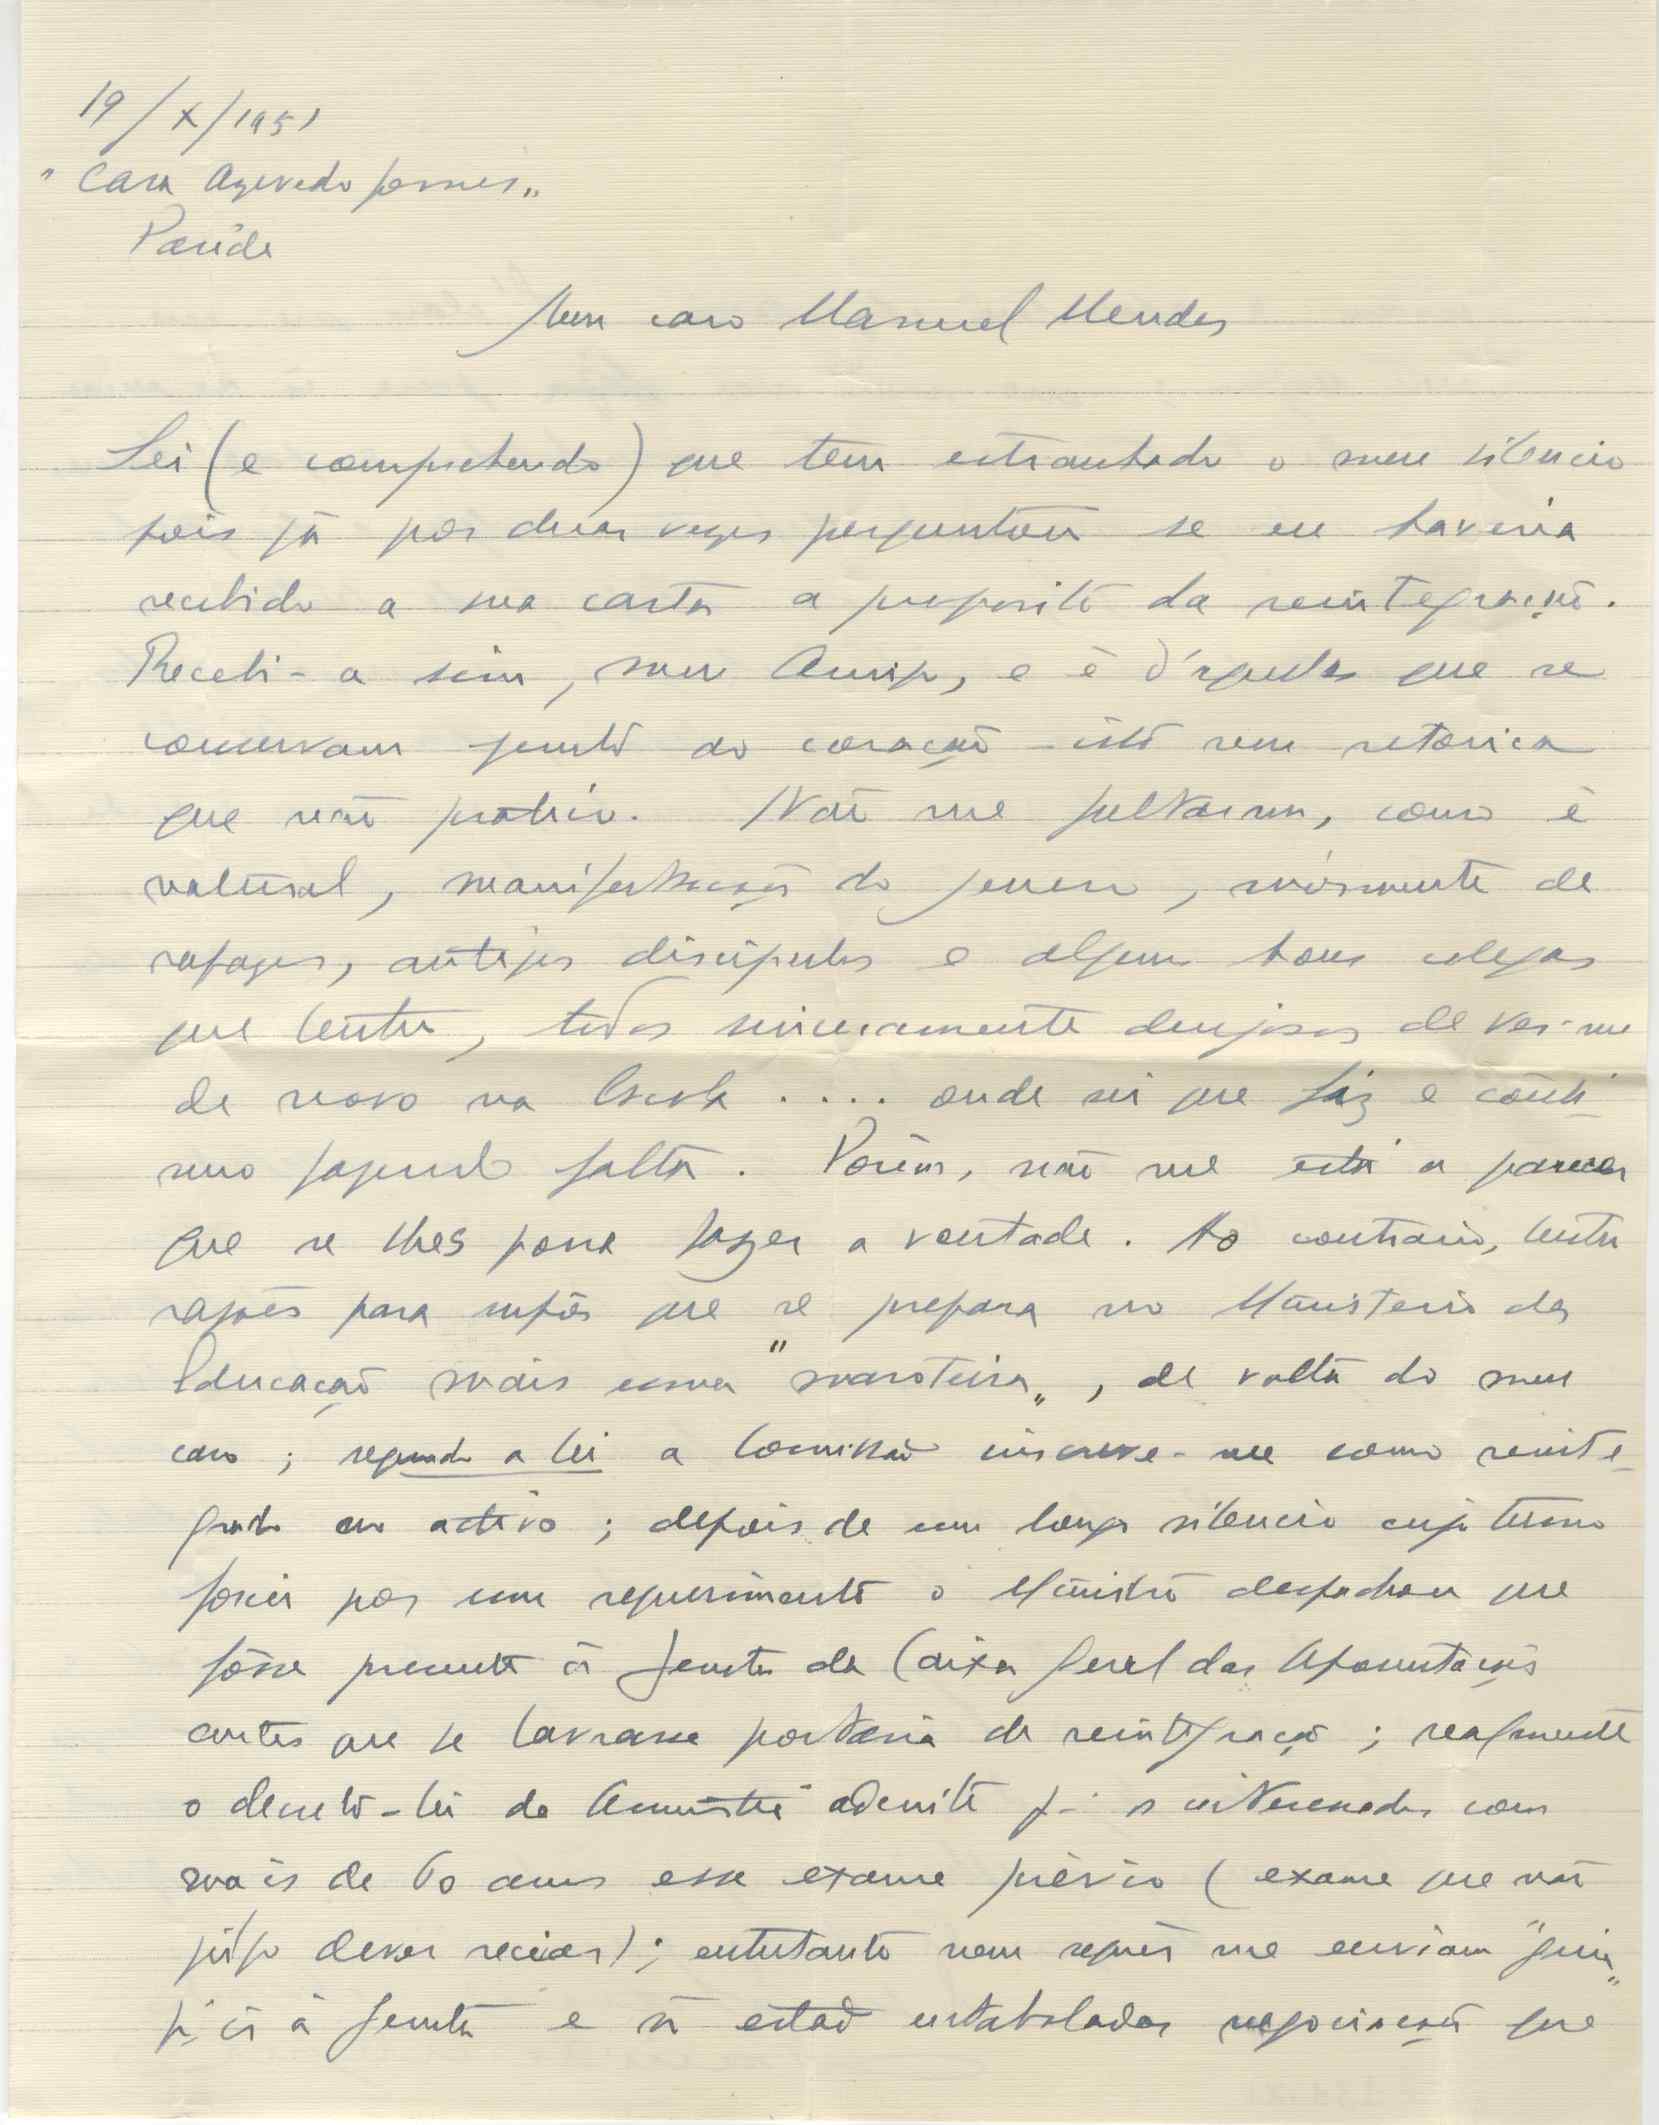 19/X/1951
"Casa Azevedo Gomes"
Parêde
Meu caro Manuel Mendes
Sei (e comprehendo) que tem extranhado o meu silencio
pois já por duas vezes perguntou se eu haveria
recebido a sua carta a proposito da reintegração.
Recebi-a sim, meu Amigo, e é d'aquelas que se
conservam junto do coração – isto sem retorica
que não pratico. Não me faltaram, como é
natural, manifestações do genero, mórmente de
rapazes, antigos discipulos e alguns bons colegas
que tenho, todos sinceramente desejosos de ver-me
de novo na Escola .... onde sei que fiz e conti-
nuo fazendo falta. Porém, não me está a parecer
que se lhes possa fazer a vontade. Ao contrario, tenho
razões para supôr que se prepara no Ministerio da
Educação mais uma "maroteira", de volta do meu
caso; segundo a lei a Comissão inscreve-me como reinte-
grado no activo; depois de um longo silencio cujo termo
forcei por um requerimento o Ministro despachou que
fôsse presente á Junta da Caixa Geral das Aposentações
antes que se lavrasse portaria de reintegração; realmente
o decreto-lei da Amnistia admite p.ª os interessados com
mais de 60 anos esse exame prévio (exame que não
julgo dever recear); entretanto nem sequer me enviam "guia"
p.ª ir á Junta e só estão entaboladas negociações que